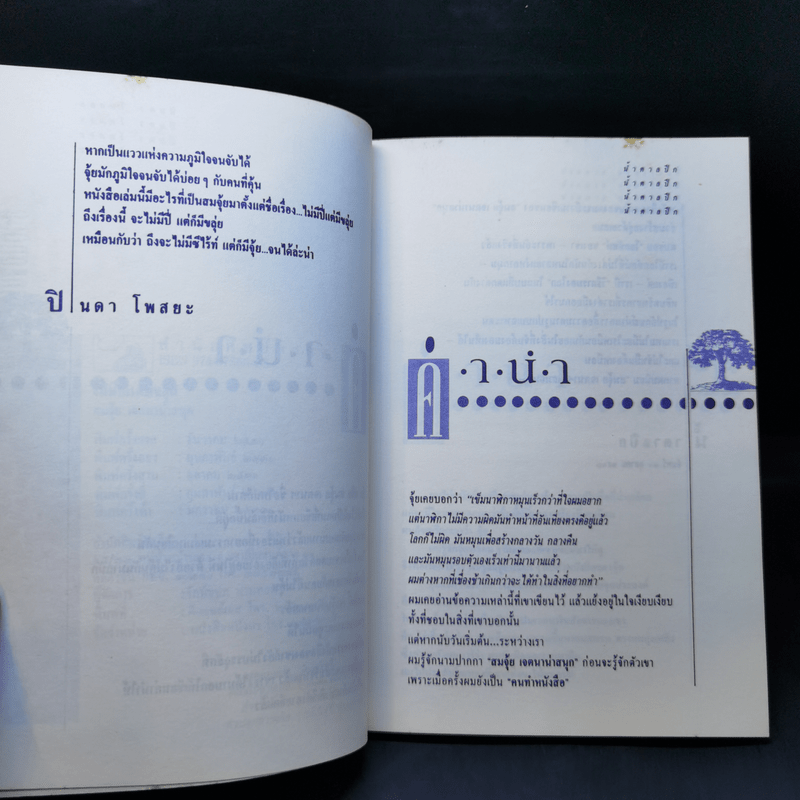 หากเป็นแววแห่งความภูมิใจจนจับได้
จุ้ยมักภูมิใจจนจับได้บ่อยๆ กับคนที่คุ้น
หนังสือเล่มนี้มีอะไรที่เป็นสมจุ้ยมาตั้งแต่ชื่อเรื่อง...ไม่มีปี่แต่มีขลุ่ย
ถึงเรื่องนี้ จะไม่มีปี่ แต่ก็มีขลุ่ย
เหมือนกับว่า ถึงจะไม่มีซีไร้ท์ แต่ก็มีจุ้ย...จนได้ล่ะน่า
ปินดา โพสยะ
น้ำตาลปึก
น้ำตาลปึก
น้ำตาลปึก
น้ำตาลปึก
คำ·นำ
จุ้ยเคยบอกว่า "เข็มนาฬิกาหมุนเร็วกว่าที่ใจผมอยาก
แต่นาฬิกาไม่มีความผิดมันทำหน้าที่อันเที่ยงตรงดีอยู่แล้ว
โลกก็ไม่ผิด มันหมุนเพื่อสร้างกลางวัน กลางคืน
และมันหมุนรอบตัวเองเร็วเท่านี้มานานแล้ว
ผมต่างหากที่เชื่องช้าเกินกว่าจะได้ทำในสิ่งที่อยากทำ"
ผมเคยอ่านข้อความเหล่านี้ที่เขาเขียนไว้ แล้วแย้งอยู่ในใจเงียบเงียบ
ทั้งที่ชอบในสิ่งที่เขาบอกนั้น
แต่หากนับวันเริ่มต้น...ระหว่างเรา
ผมรู้จักนามปากกา "สมจุ้ย เจตนาน่าสนุก" ก่อนจะรู้จักตัวเขา
เพราะเมื่อครั้งผมยังเป็น "คนทำหนังสือ"